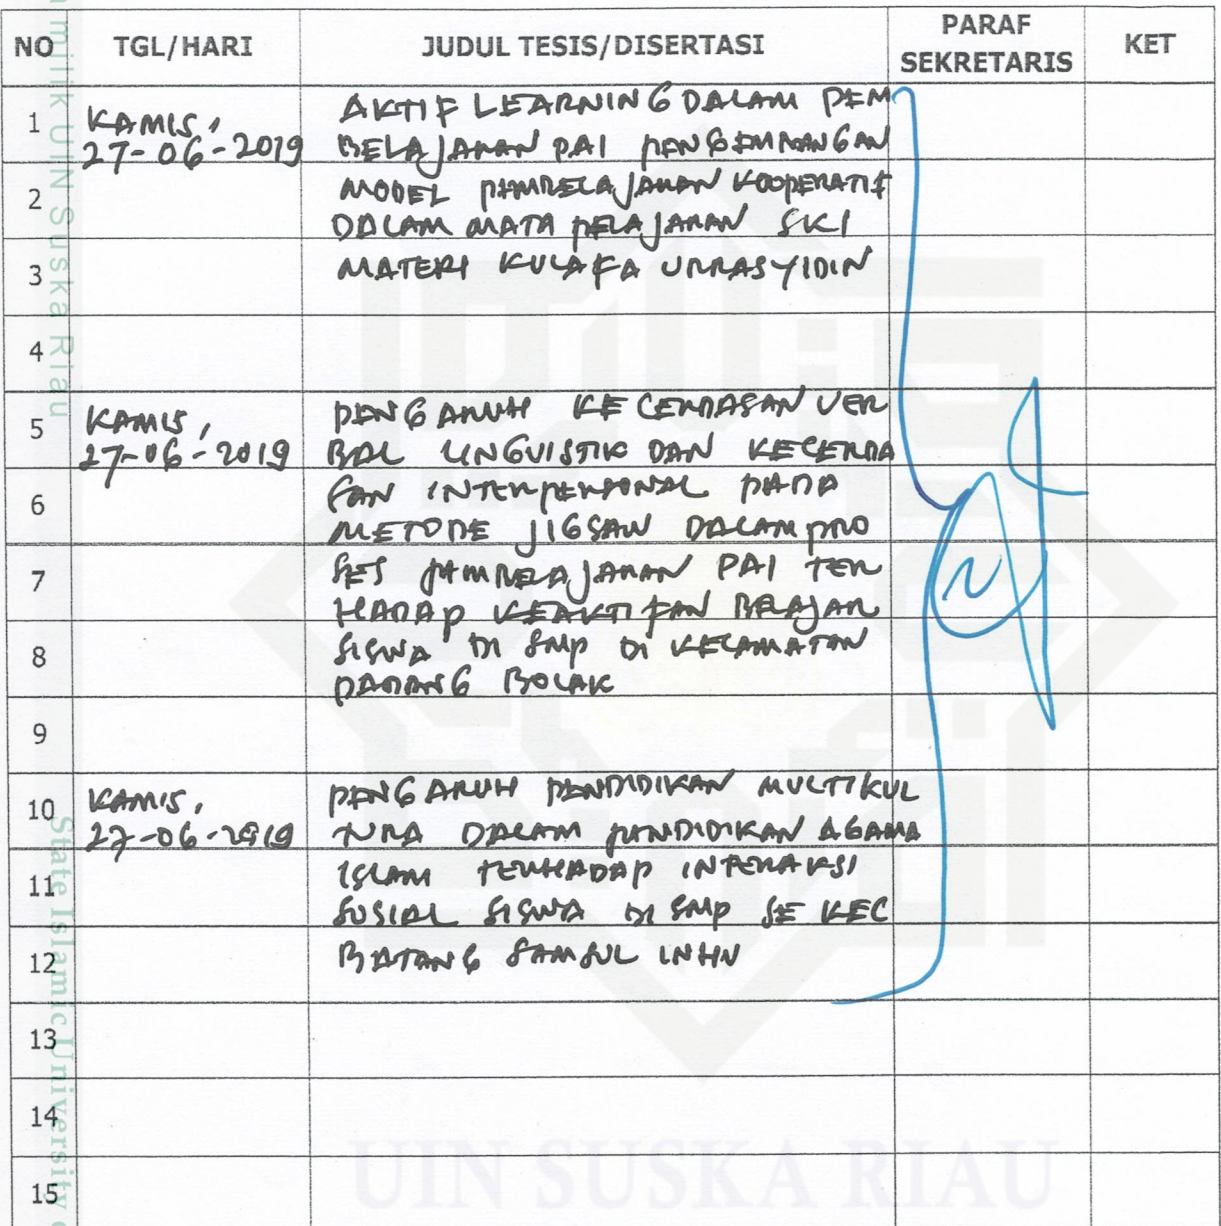 NO TGL/HARI JUDUL TESIS/DISERTASI PARAF SEKRETARIS KET
1 KAMIS, AKTIF LEARNING DALAM PEM
27-06-2019 BELAJARAN PAI PENGEMBANGAN
2 MODEL PEMBELAJARAN KOOPERATIF
DALAM MATA PELAJARAN SKI
3 MATERI KULAFA URRASYIDIN
4
5 KAMIS, PENGARUH KECERDASAN VER
27-06-2019 BAL LINGUISTIK DAN KECERDA
6 SAN INTERPERSONAL PADA
METODE JIGSAW DALAM PRO
7 SES PEMBELAJARAN PAI TER
HADAP KEAKTIFAN BELAJAR
8 SISWA DI SMP DI KECAMATAN
PADANG BOLAK
9
10 KAMIS, PENGARUH PENDIDIKAN MULTIKUL
27-06-2019 TURA DALAM PENDIDIKAN AGAMA
11 ISLAM TERHADAP INTERAKSI
SOSIAL SISWA DI SMP SE KEC
12 BATANG SAMSUL INHU
13
14
15
milik UIN Suska Riau
State Islamic University
UIN SUSKA RIAU